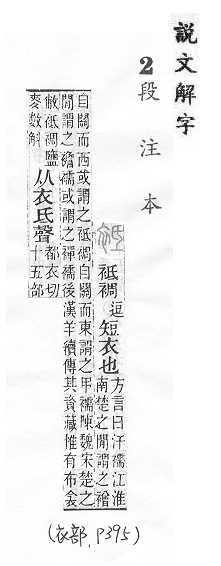 說文解字
2 段注本
袛裯 逗 短衣也 方言曰汗襦江淮
南楚之閒謂之䙢
自關而西或謂之袛裯自關而東謂之甲襦陳魏宋楚之
閒謂之襜襦或謂之襌襦後漢羊續傳其資藏惟有布衾
敝袛裯鹽
麥數斛
从衣氐聲
都兮切
十五部
(衣部, P395)